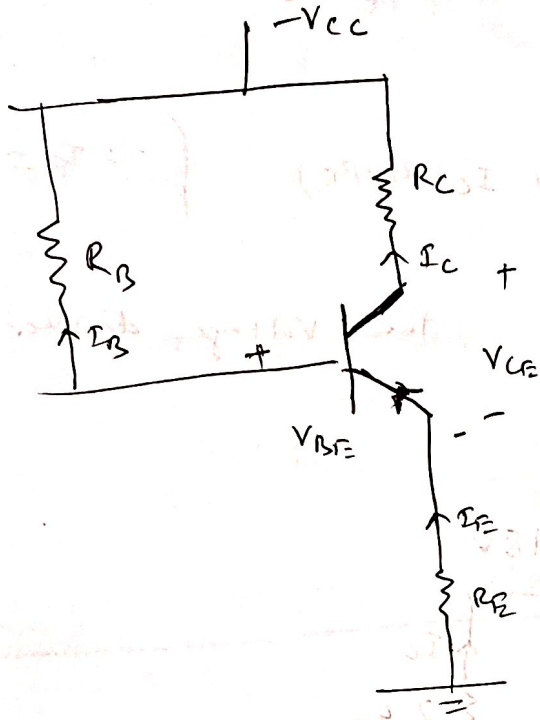 -VCC
RC
RB
IC
+
IB
+
VCE
VBE
-
-
IE
RE